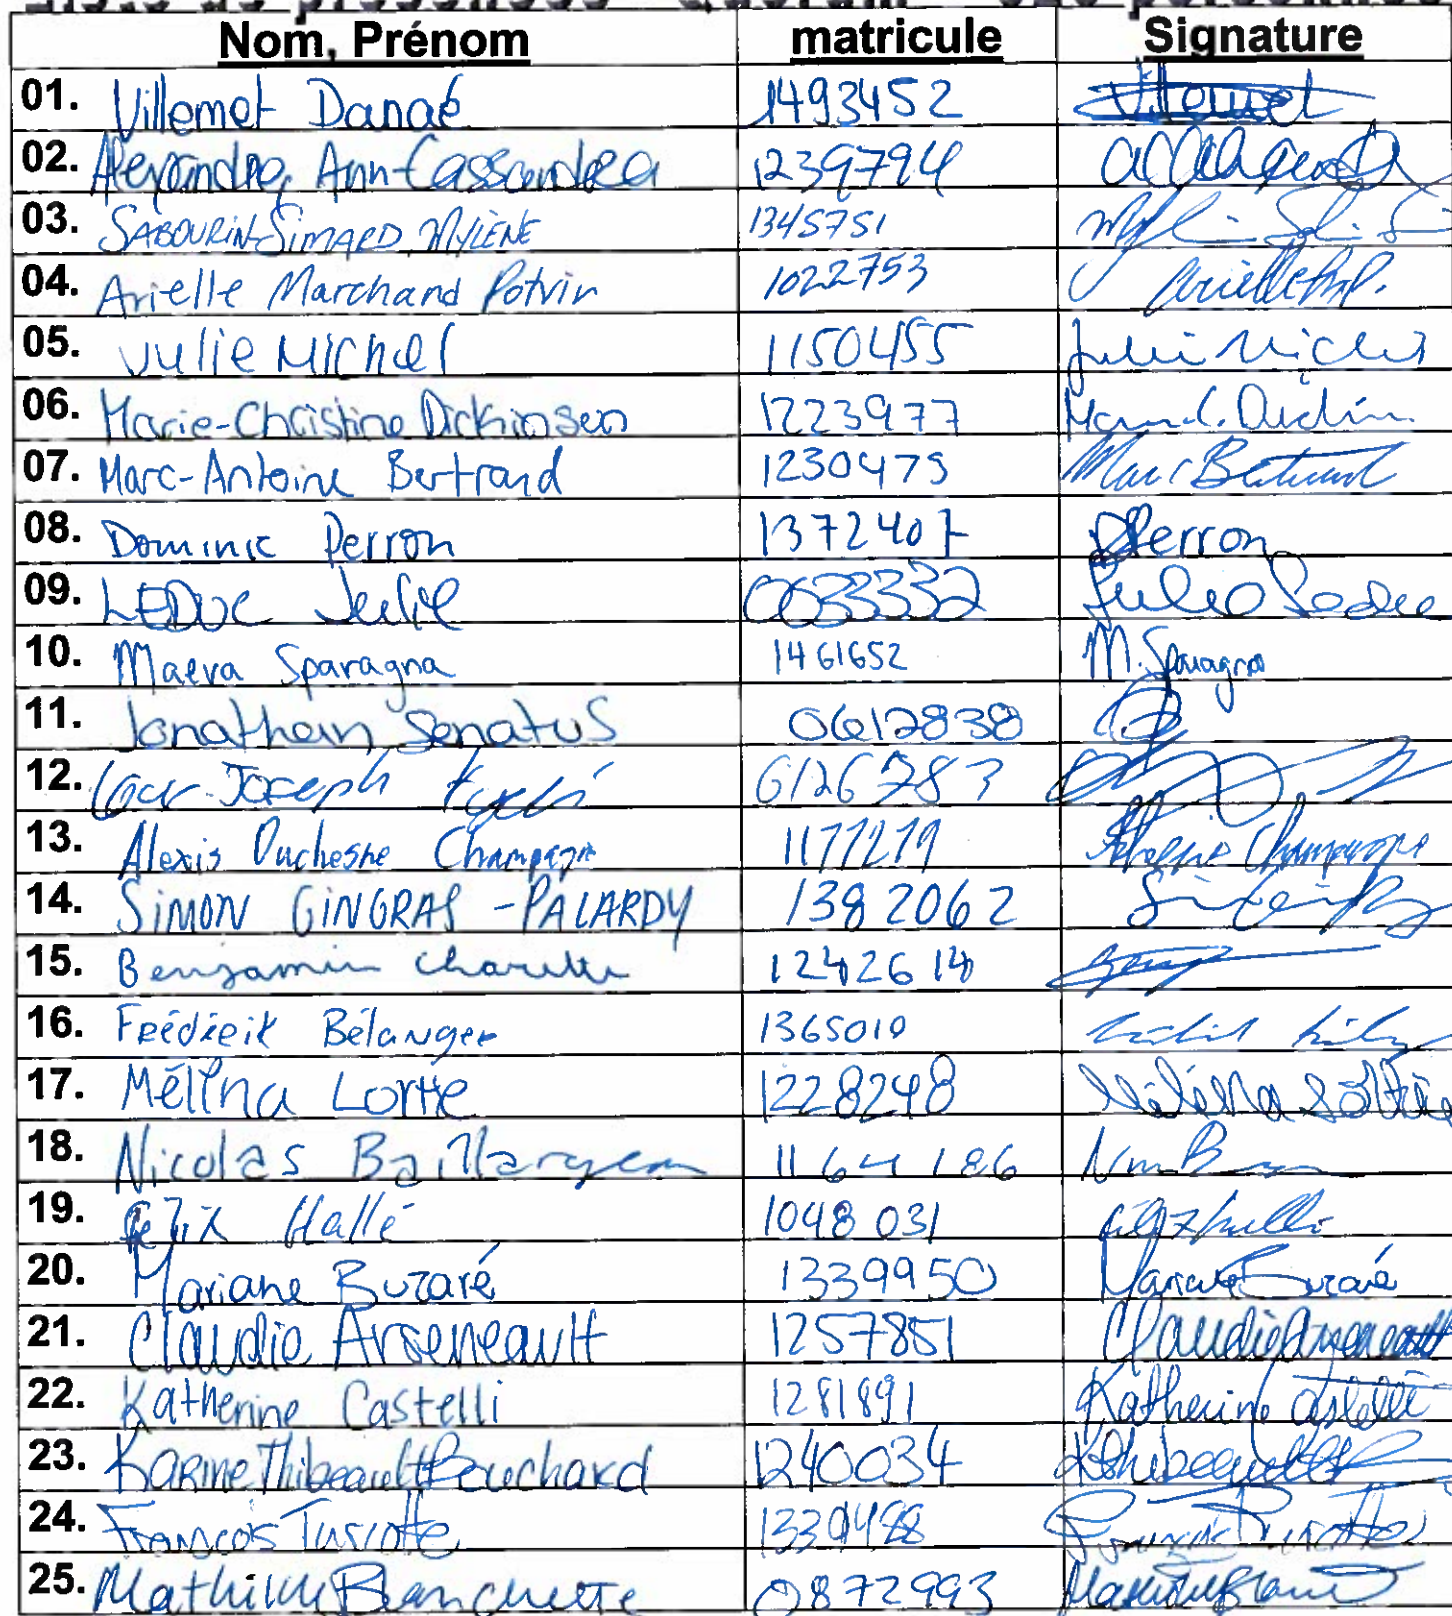 Nom, Prénom matricule Signature
01. Villemet Danaé 1493452 Villemet
02. Alexandre, Ann-Cassandra 1239794
03. SABOURIN-SIMARD, MYLÈNE 1345751
04. Arielle Marchand Potvin 1022753 ArielleMP.
05. Julie Michel 1150455 Julie Michel
06. Marie-Christine Dickinson 1223977
07. Marc-Antoine Bertrand 1230475 Marc Bertrand
08. Dominic Perron 1372407 DPerron
09. LEDUC Julie 0633332 Julie Leduc
10. Maeva Sparagna 1461652 M. Sparagna
11. Jonathan Senatus 0612838
12. Joseph 6126783
13. Alexis Duchesne Champagne 1177279 Champagne
14. SIMON GINGRAS-PALARDY 1382062
15. Benjamin Charette 1242614
16. Frédérik Bélanger 1365010
17. Mélina Lortie 1228248 Mélina Lortie
18. Nicolas Baillargeon 1164186
19. Félix Hallé 1048031
20. Mariane Buzaré 1339950 Mariane Buzaré
21. Claudie Arseneault 1257851 Claudie Arseneault
22. Katherine Castelli 1281891 Katherine Castelli
23. Karine Thibeault-Bouchard 1240034
24. François Turcotte François Turcotte
25. Mathilde Blanchette 0872993